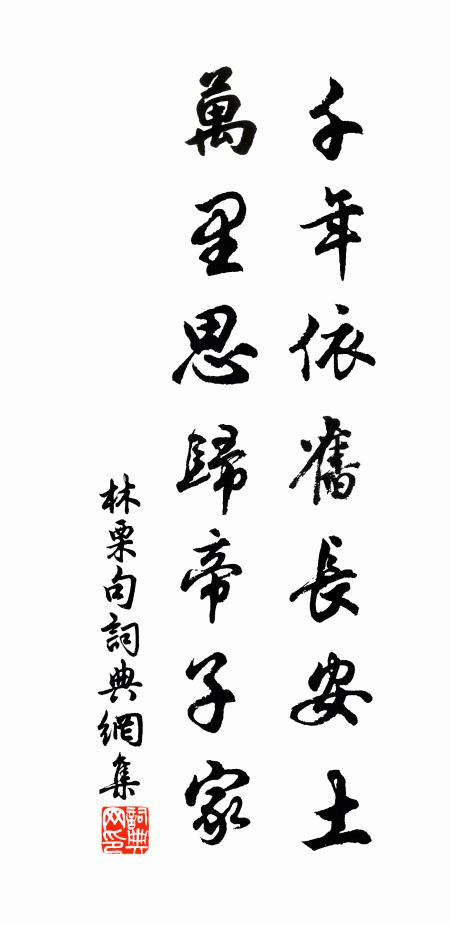 千年依舊長安土
萬里思歸帝子家
林栗句詞典網集
詞典網印